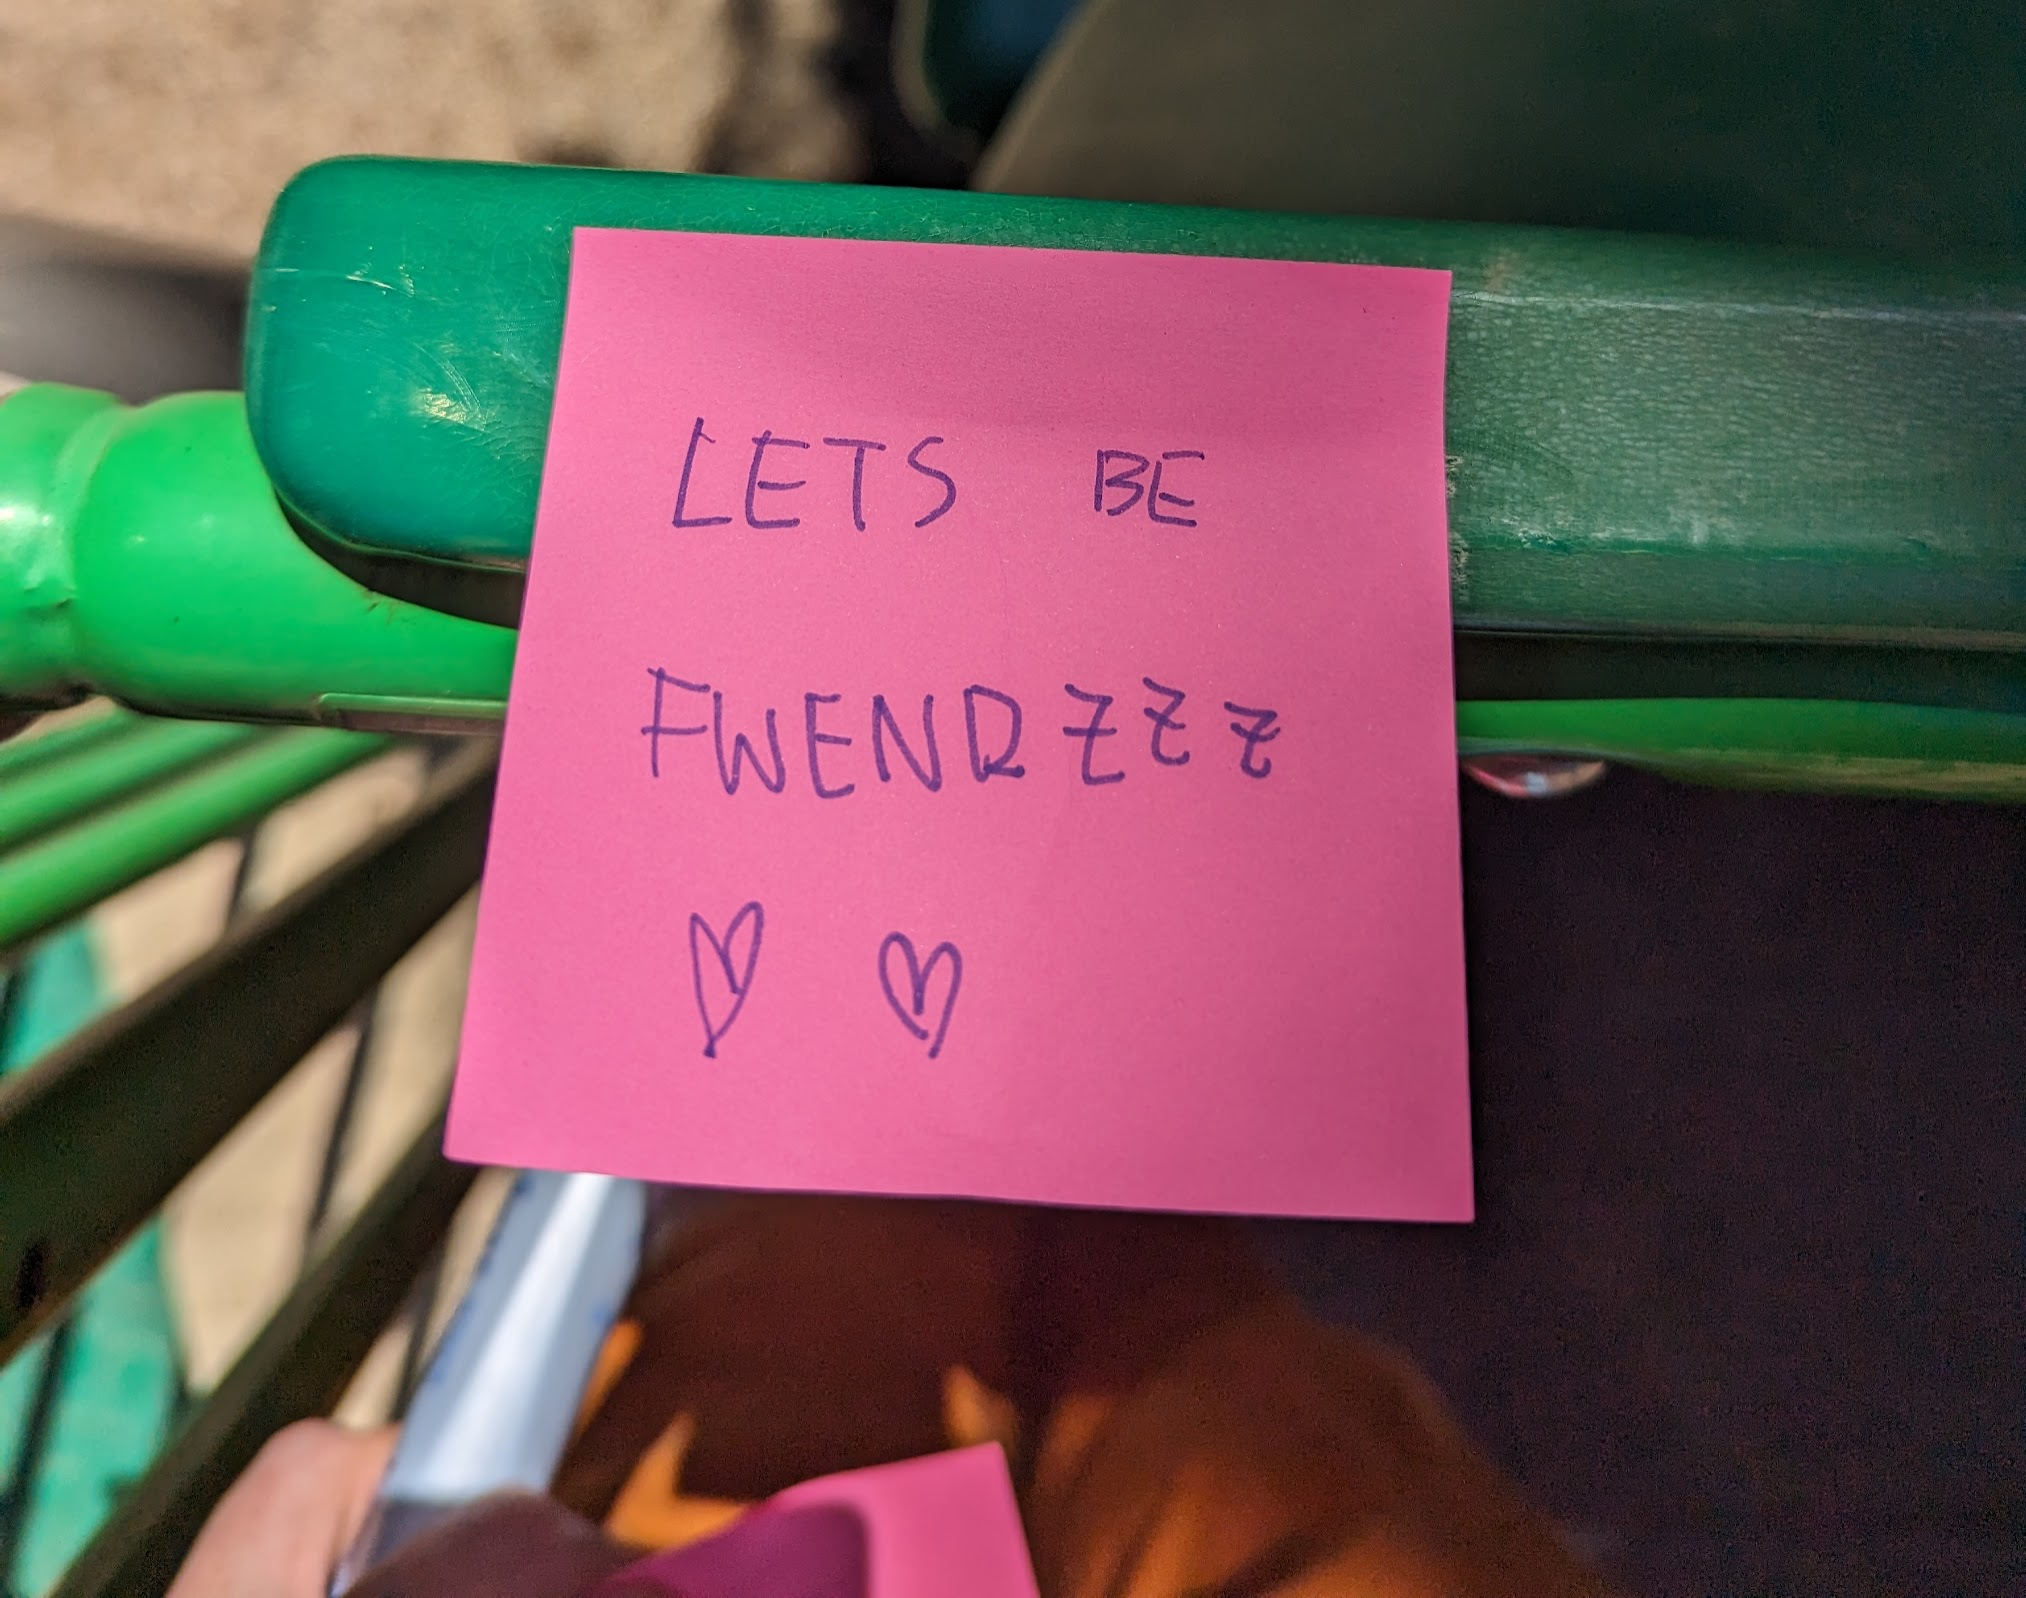 LETS BE
FWENDZZZ
♡ ♡